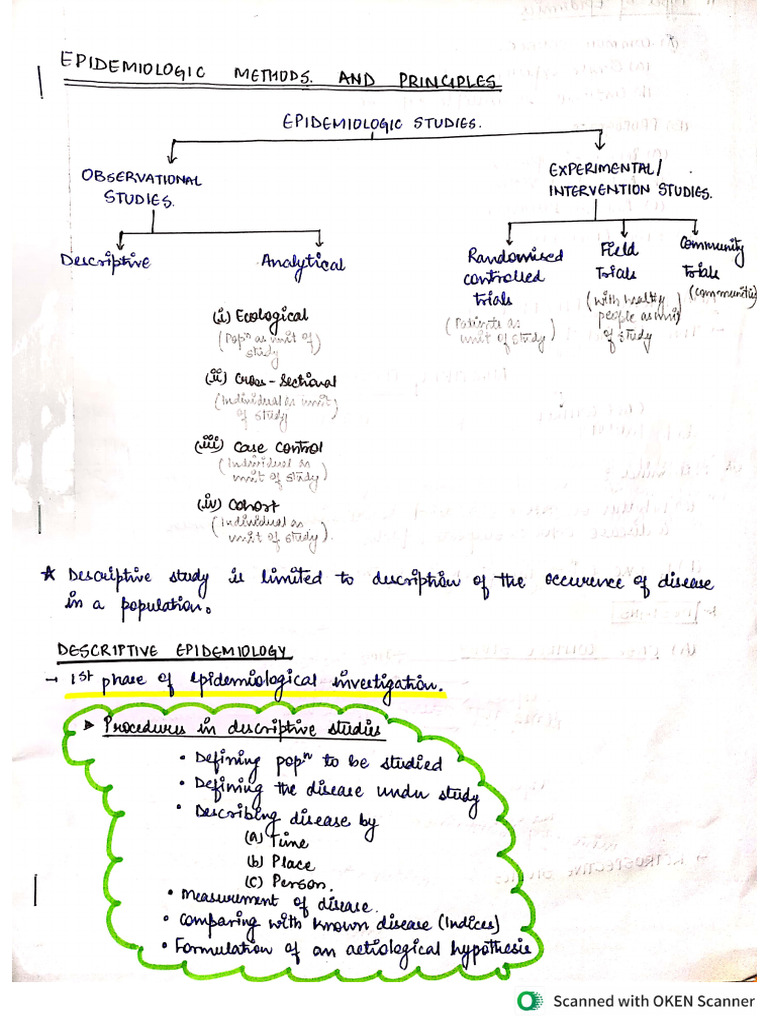 EPIDEMIOLOGIC METHODS. AND PRINCIPLES
EPIDEMIOLOGIC STUDIES.
OBSERVATIONAL
STUDIES.
EXPERIMENTAL/
INTERVENTION STUDIES.
Descriptive
Analytical
(i) Ecological
(Popⁿ as unit of
study)
(ii) Cross-Sectional
(Individual as unit
of study)
(iii) Case Control
(Individual as
unit of study)
(iv) Cohort
(Individual as
unit of study).
Randomised
controlled
trials
(Patients as
unit of study)
Field
Trials
(with healthy
people as unit
of study)
Community
Trials
(communities)
* Descriptive study is limited to description of the occurence of disease
in a population.
DESCRIPTIVE EPIDEMIOLOGY
→ 1st phase of epidemiological investigation.
➤ Procedures in descriptive studies
• Defining popⁿ to be studied
• Defining the disease under study
• Describing disease by
(a) Time
(b) Place
(c) Person.
• Measurement of disease.
• comparing with known disease (Indices)
• Formulation of an aetiological hypothesis
Scanned with OKEN Scanner